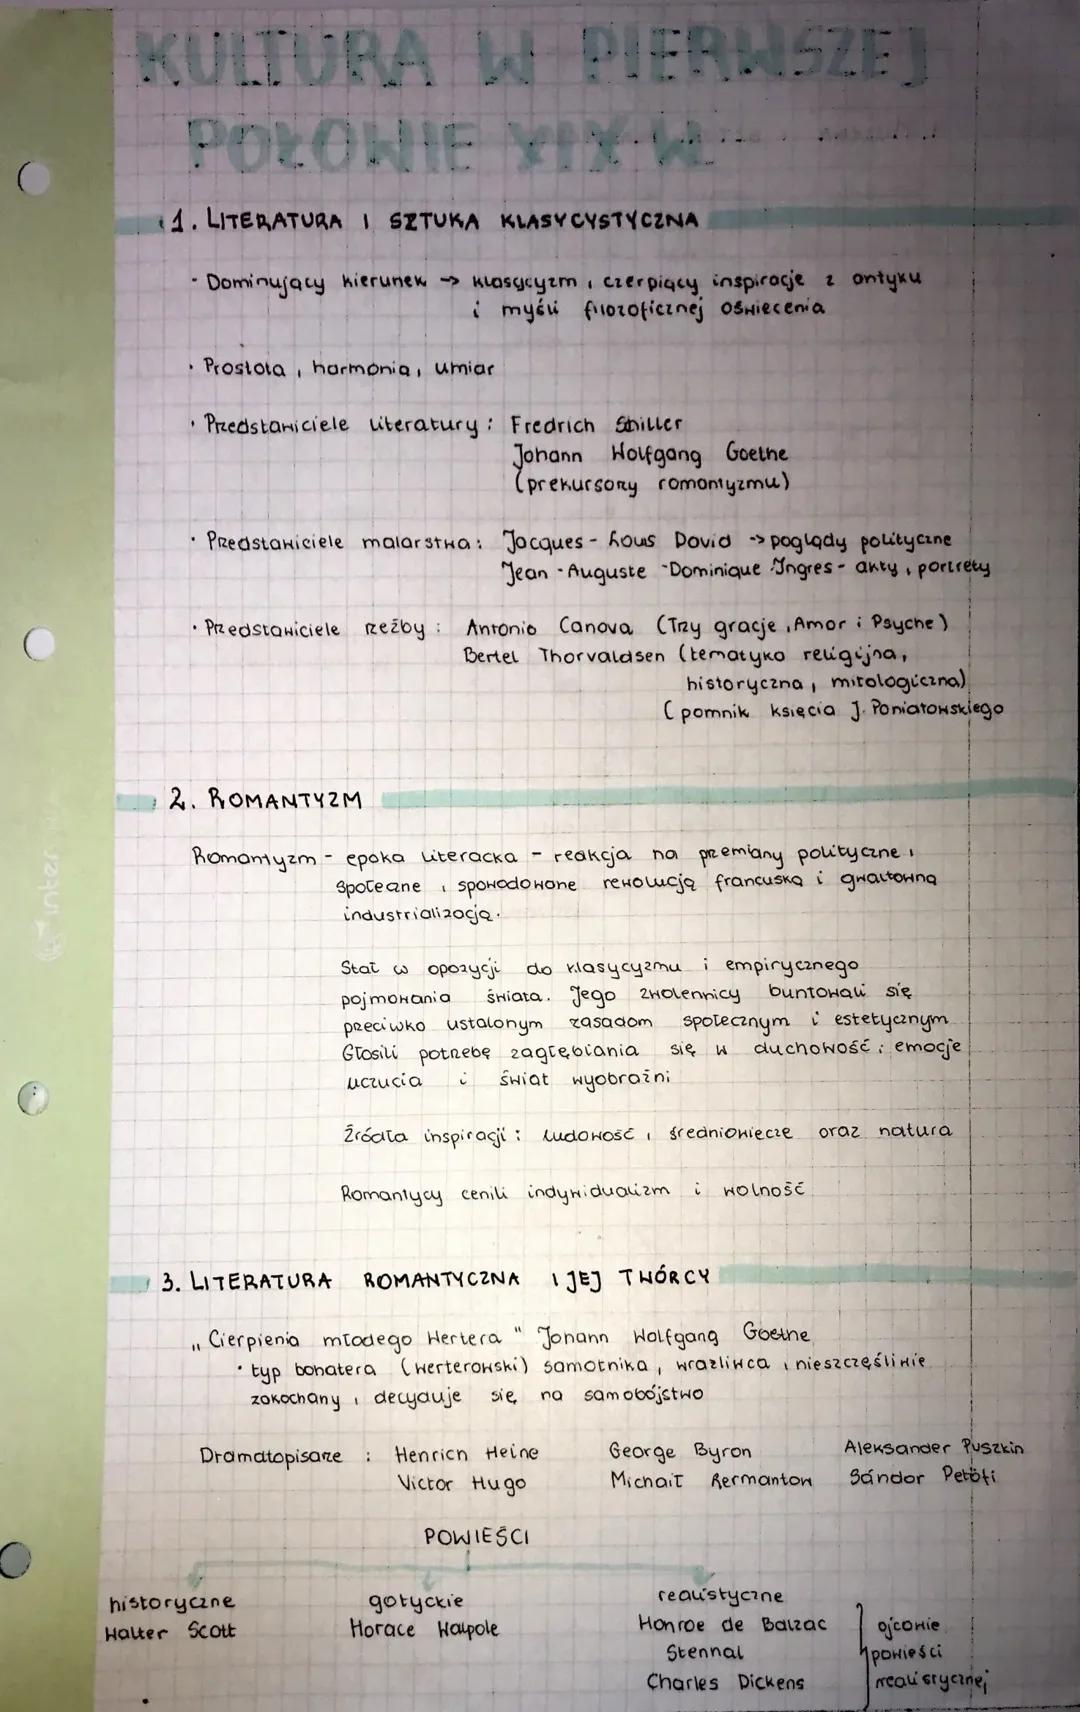 KULTURA W PIERWSZEJ
POŁOWIE XIX W.
1. LITERATURA I SZTUKA KLASYCYSTYCZNA
• Dominujący kierunek -> klasycyzm, czerpiący inspiracje z antyku
i myśli filozoficznej oświecenia
• Prostota, harmonia, umiar
• Przedstawiciele literatury: Fredrich Shiller
Johann Wolfgang Goethe
(prekursorzy romantyzmu)
• Przedstawiciele malarstwa: Jacques-Louis David -> poglądy polityczne
Jean-Auguste-Dominique Ingres - akty, portrety
• Przedstawiciele rzeźby: Antonio Canova (Trzy gracje, Amor i Psyche)
Bertel Thorvaldsen (tematyka religijna,
historyczna, mitologiczna)
(pomnik księcia J. Poniatowskiego
2. ROMANTYZM
Romantyzm - epoka literacka - reakcja na przemiany polityczne,
społeczne, spowodowane rewolucją francuską i gwałtowną
industrializacją.
Stał w opozycji do klasycyzmu i empirycznego
pojmowania świata. Jego zwolennicy buntowali się
przeciwko ustalonym zasadom społecznym i estetycznym
Głosili potrzebę zagłębiania się w duchowość, emocje
uczucia i świat wyobraźni
Źródła inspiracji: ludowość, średniowiecze oraz natura
Romantycy cenili indywidualizm i wolność
3. LITERATURA ROMANTYCZNA I JEJ TWÓRCY
„Cierpienia młodego Wertera" Johann Wolfgang Goethe
• typ bohatera (werterowski) samotnika, wrażliwca, nieszczęśliwie
zakochany, decyduje się na samobójstwo
Dramatopisarze: Henrich Heine George Byron Aleksander Puszkin
Victor Hugo Michaił Rermantow Sándor Petöfi
POWIEŚCI
historyczne gotyckie realistyczne
Walter Scott Horace Walpole Honroe de Balzac ojcowie
Stennal powieści
Charles Dickens realistycznej
inter